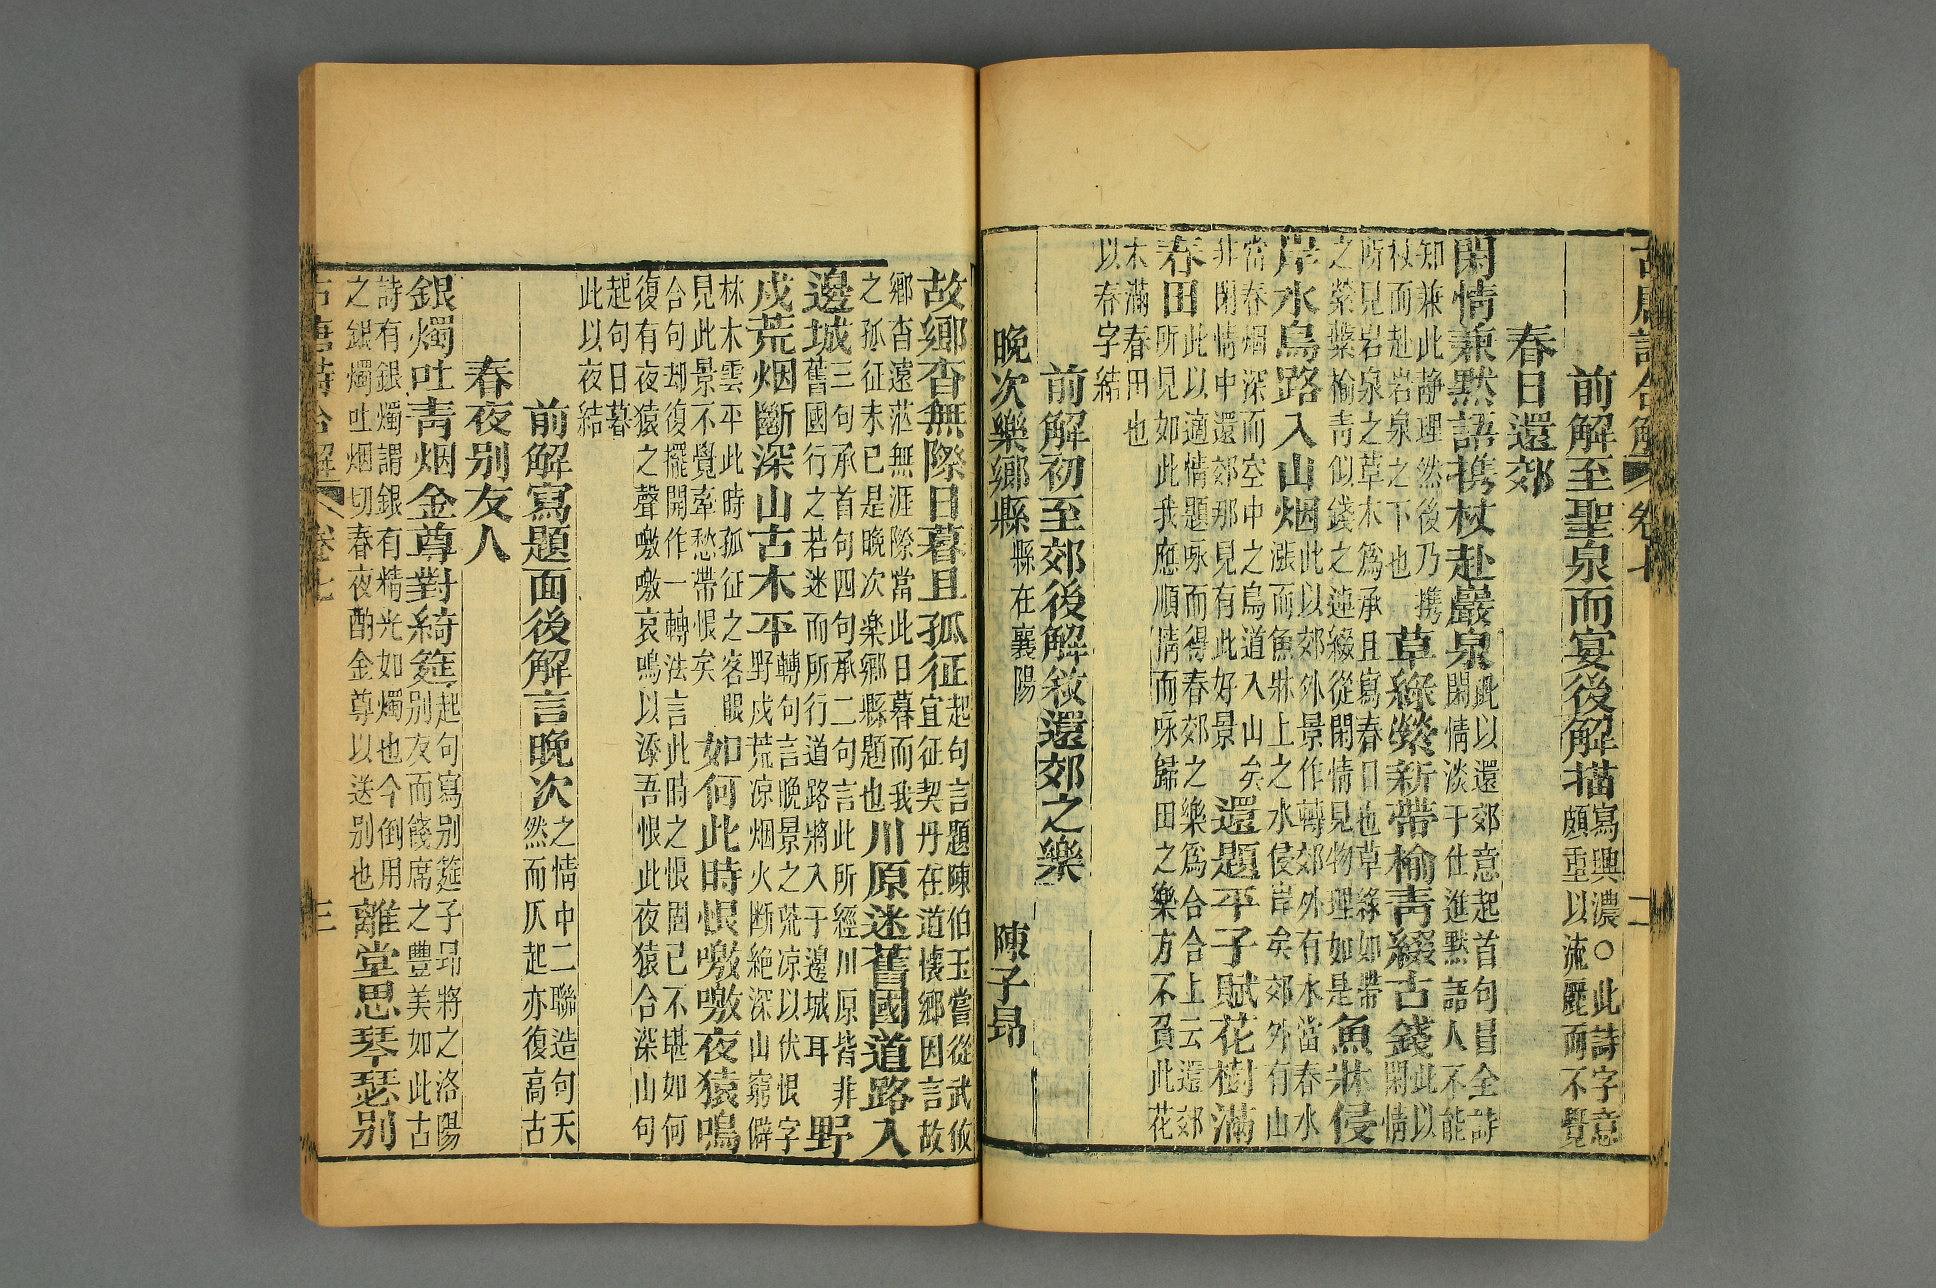 古唐詩合解 卷七 二
前解至聖泉而宴後解描寫興濃○此詩字意頗重以流麗而不覺
春日還郊
閒情兼默語携杖赴巖泉此以還郊意起首句冒全詩閒情淡于仕進默語人不能
知兼此静理然後乃携杖而赴岩泉之下也草綠縈新帶榆青綴古錢此以閒情
所見岩泉之草木爲承且寫春日也草綠如帶之縈縈榆青似錢之連綴從閒情見物理如是魚牀侵
岸水鳥路入山烟此以郊外景作轉郊外有水當春水漲而魚牀上之水侵岸矣郊外有山
當春烟深而空中之鳥道入山矣非閒情中還郊那見有此好景還題平子賦花樹滿
春田此以適情題咏而得春郊之樂爲合合上云還郊所見如此我應順情而咏歸田之樂方不負此花
木滿春田也以春字結
前解初至郊後解敘還郊之樂
晚次樂鄉縣縣在襄陽 陳子昻
故鄉杳無際日暮且孤征起句言題陳伯玉嘗從武攸宜征契丹在道懷鄉因言故
鄉杳遠茫無涯際當此日暮而我之孤征未已是晚次樂鄉縣題也川原迷舊國道路入
邊城三句承首句四句承二句言此所經川原皆非舊國行之若迷而所行道路將入于邊城耳野
戍荒烟斷深山古木平轉句言晚景之荒凉以伏恨字野戍荒凉烟火断絶深山窮僻
林木雲平此時孤征之客眼見此景不覺牽愁帶恨矣如何此時恨噭噭夜猿鳴
合句却復擺開作一轉法言此時之恨固已不堪如何復有夜猿之聲噭噭哀鳴以添吾恨此夜猿合深山句
起句日暮此以夜結
前解寫題面後解言晚次之情中二聯造句天然而仄起亦復高古
春夜别友人
銀燭吐青烟金尊對綺筵起句寫别筵子昻將之洛陽别友而餞席之豐美如此古
詩有銀燭謂銀有精光如燭也今倒用之銀燭吐烟切春夜酌金尊以送别也離堂思琴瑟别
古唐詩合解 卷七 三